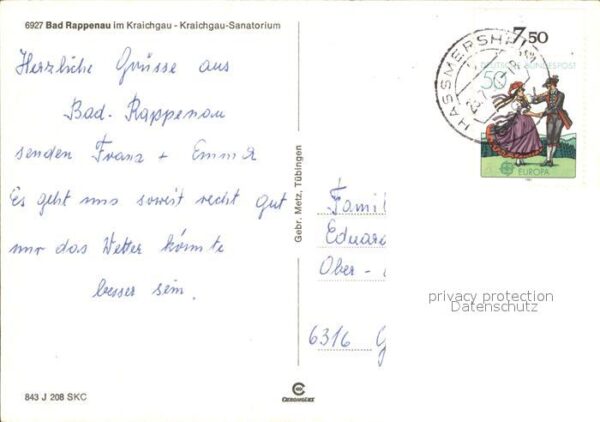 6927 Bad Rappenau im Kraichgau - Kraichgau-Sanatorium
Herzliche Grüsse aus
Bad-Rappenau
senden Franz + Emma
Es geht uns soweit recht gut
nur das Wetter könnte
besser sein.
843 J 208 SKC
Gebr. Metz, Tübingen
CEKUNGERT
7,50
DEUTSCHE BUNDESPOST
50
HASSMERSHEIM
EUROPA
Famil
Eduard
Ober -
6316 G
privacy protection
Datenschutz